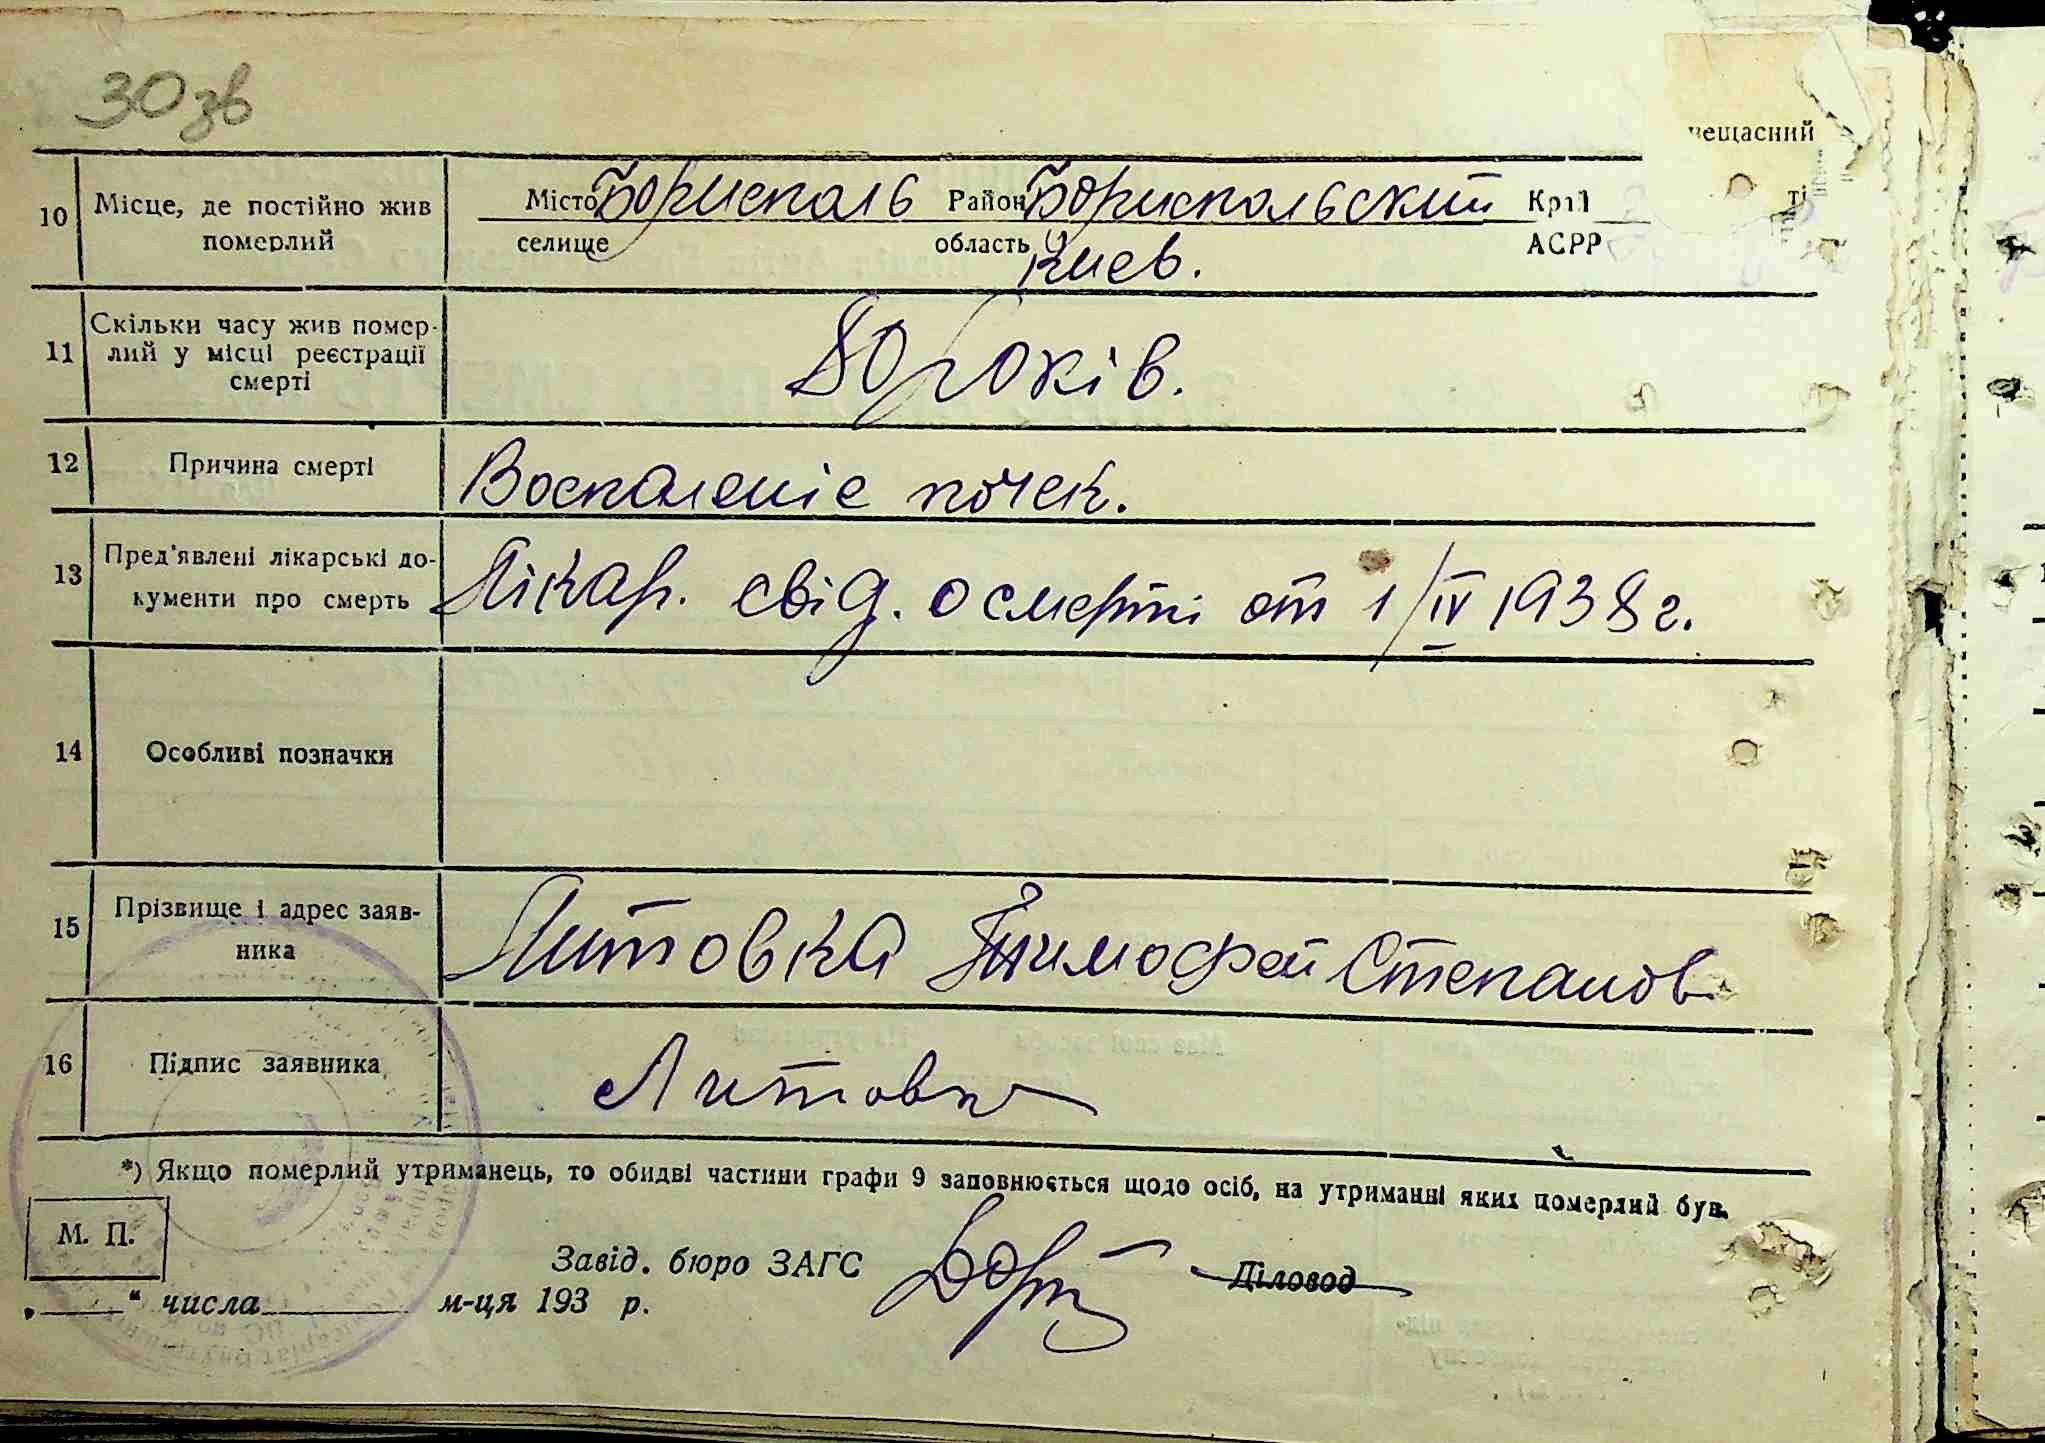 30 зв
нещасний
10 Місце, де постійно жив померлий
Місто Борисполь Район Бориспольский Край
селище область Киев. АСРР
11 Скільки часу жив помер-
лий у місці реєстрації
смерті
80 років.
12 Причина смерті Воспаленіе почек.
13 Пред'явлені лікарські до-
кументи про смерть
Лікар. свід. о смерті от 1/IV 1938 г.
14 Особливі позначки
15 Прізвище і адрес заяв-
ника
Литовка Тимофей Степанов
16 Підпис заявника Литовка
*) Якщо померлий утриманець, то обидві частини графи 9 заповнюється щодо осіб, на утриманні яких померлий був.
М. П.
Завід. бюро ЗАГС Діловод
„ “ числа м-ця 193 р.